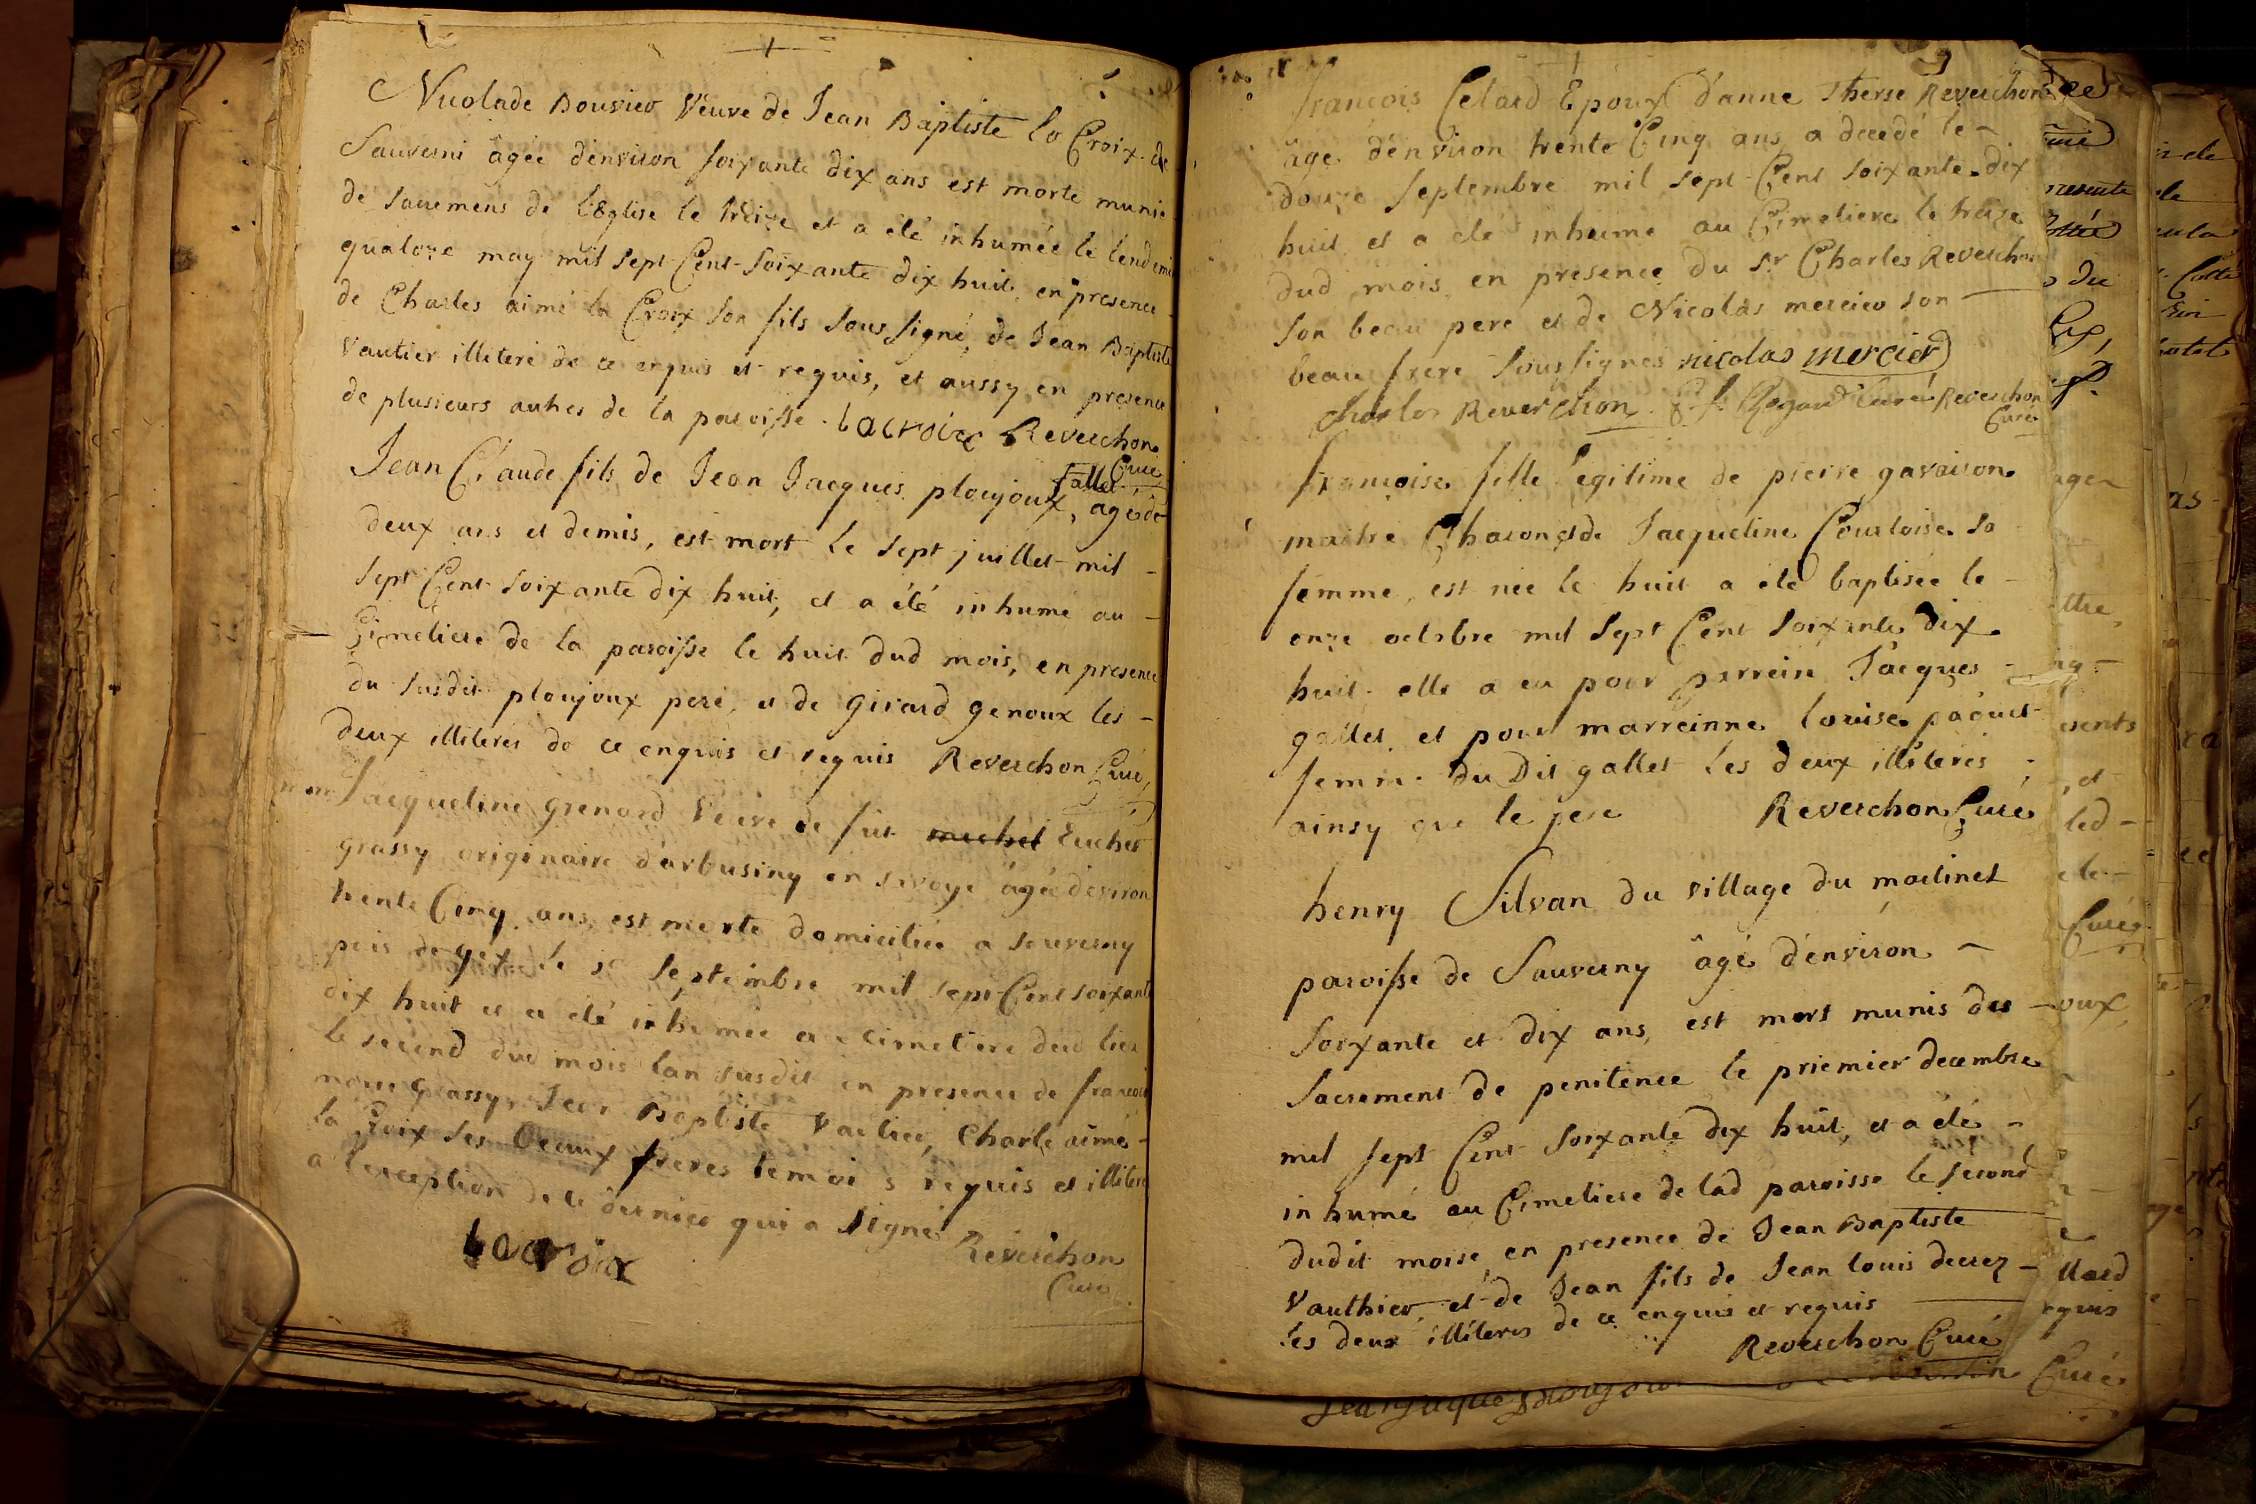 Nicolade Bouvier Veuve de Jean Baptiste la Croix de
Sauverni âgée d'environ soixante dix ans est morte munie
de sacremens de l'Eglise le treize et a été inhumée le lendemin
quatorze may mil sept Cent Soixante dix huit, en presence
de Charles aimé la Croix son fils sous signé, de Jean Baptiste
Vautier illiteré de ce enquis et requis, et aussy en presence
de plusieurs autres de la paroisse. lacroix Reverchon
Curé
Jean Claude fils de Jean Jacques ploujoux, agé de
deux ans et demis, est mort le sept juillet mil -
sept Cent soixante dix huit, et a été inhumé au -
Cimetiere de la paroisse le huit dud mois, en presence
du susdit ploujoux pere, et de Girard Genoux les -
deux illiterés de ce enquis et requis Reverchon Curé,
Jacqueline Grenard Veuve de fut michel Eucher
grassy originaire d'arbusiny en savoye âgée d'environ
trente Cinq ans, est morte domiciliée a sauverny
peis de gex le septembre mil sept Cent soixante
dix huit et a été inhumée au cimetiere dud lieu
le second dud mois l'an susdit en presence de francois
grassy, Jean Baptiste Vautier, Charle aimé -
la Croix ses beaux freres temoins requis et illiteré
a l'exception de le dernier qui a signé
lacroix Reverchon
Curé
françois Celard Epoux d'anne Therse Reverchon
âgé d'environ trente Cinq ans a decedé le -
douze septembre mil sept Cent soixante dix
huit et a été inhumé au Cimetiere le treize
dud mois en presence du Sr Charles Reverchon
son beau pere et de Nicolas mercier son
beau frere soussignés nicolas mercier
Charles Reverchon Curé Reverchon
Curé
françoise fille legitime de pierre gavairon
maitre Charon et de Jacqueline Courtoise sa
femme, est née le huit a été baptisée le -
onze octobre mil sept Cent soixante dix
huit elle a eu pour parrein Jacques -
gallet et pour marreinne louise paquet
femme du Dit gallet les deux illiterés
ainsy que le pere Reverchon Curé
henry Silvan du village du martinet
paroisse de Sauverny âgé d'environ -
soixante et dix ans, est mort munis des
Sacrement de penitence le priemier decembre
mil sept Cent soixante dix huit, et a été -
inhumé au Cimetiere de lad paroisse le second
dudit moise, en presence de Jean Baptiste
Vauthier, et de Jean fils de Jean louis decrez -
les deux illiterés de ce enquis et requis
Reverchon Curé